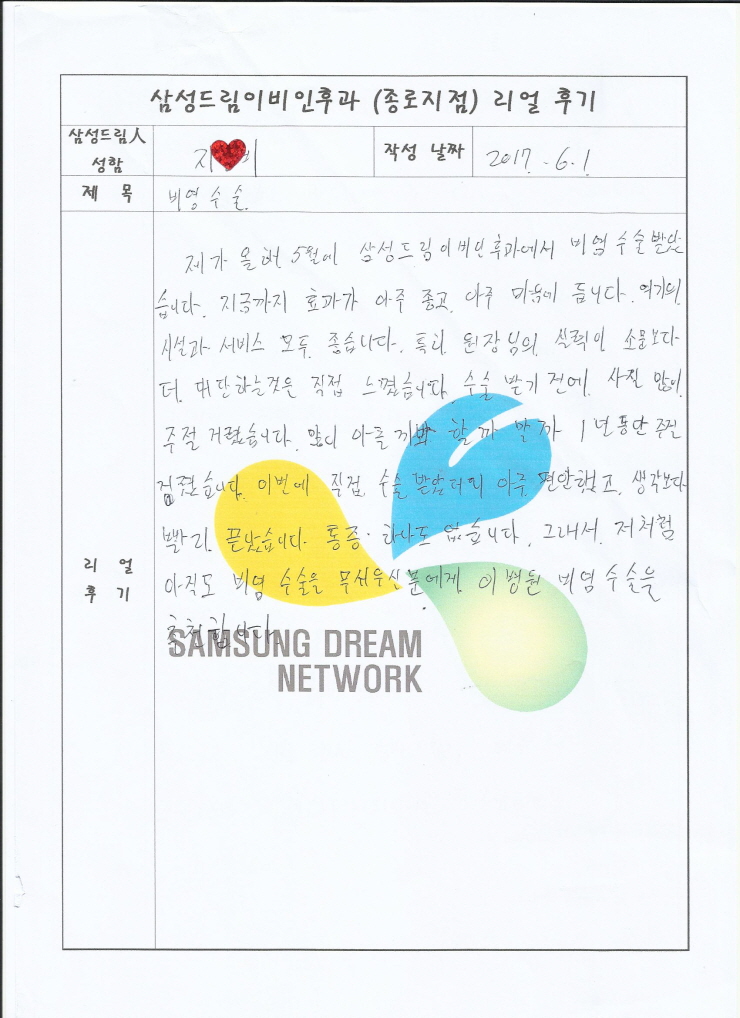 삼성드림이비인후과 (종로지점) 리얼 후기
삼성드림人 성함
지 비
작성 날짜
2017. 6. 1
제 목
비염 수술.
리 얼 후 기
제가 올해 5월에 삼성드림이비인후과에서 비염 수술받았
습니다. 지금까지 효과가 아주 좋고, 아주 마음에 듭니다. 여기의
시설과 서비스 모두 좋습니다. 특히 원장님의 실력이 소문보다
더 대단하는것은 직접 느꼈습니다. 수술 받기 전에. 사실 많이
주절 거렸습니다. 많이 아플까봐 할까 말까 1년동안 주진
짐렸습니다. 이번에 직접 수술 받았더니 아주 편안했고, 생각보다
빨리 끝났습니다. 통증 하나도 없습니다. 그래서 저처럼
아직도 비염 수술을 무서우신분에게 이 병원 비염 수술을
추천합니다.
SAMSUNG DREAM
NETWORK